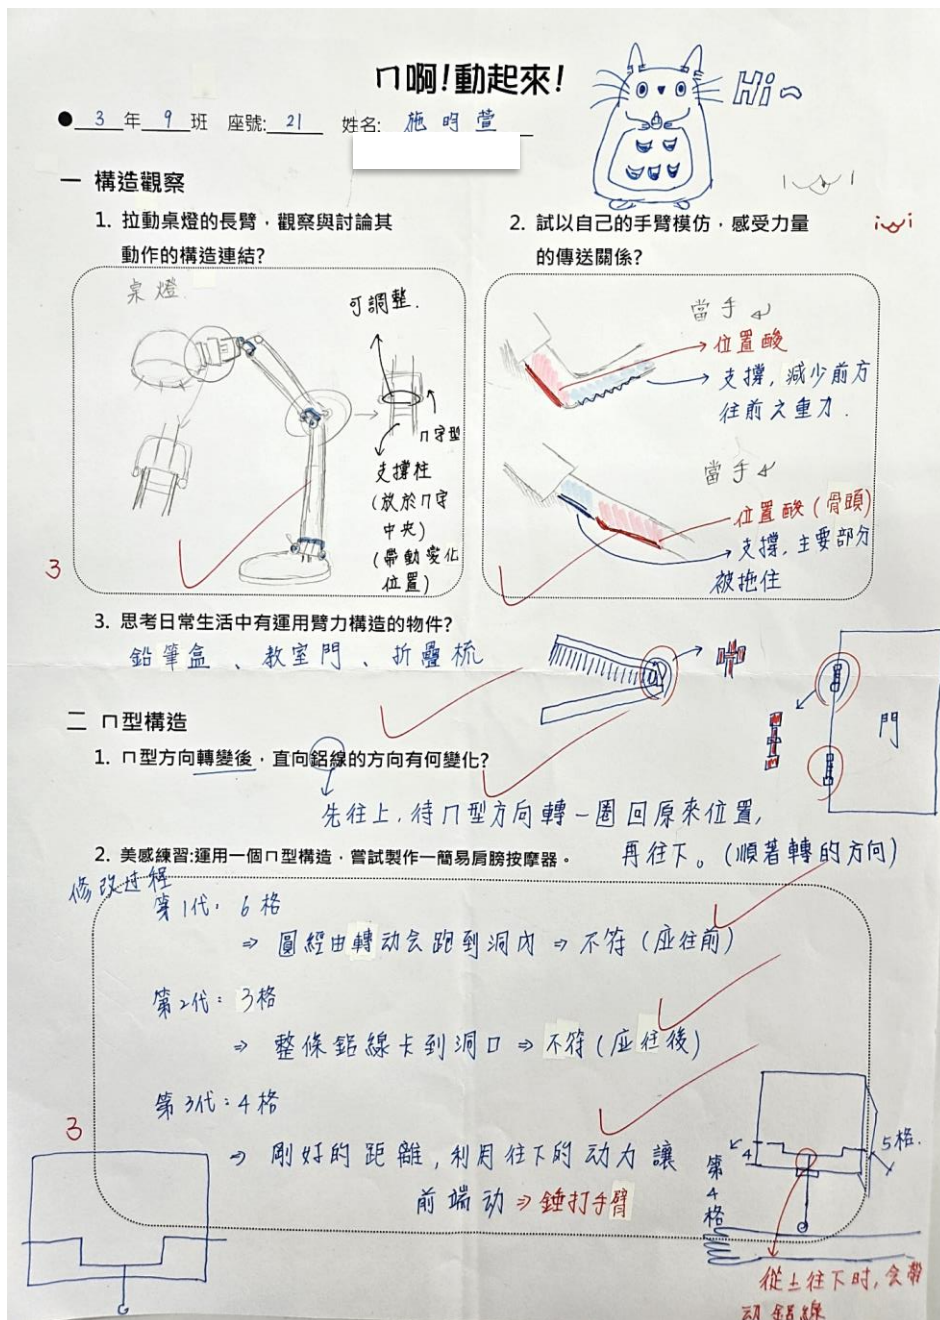 ㄇ啊!動起來!
Hi~
3年9班 座號:21 姓名: 施昀萱
一 構造觀察
1. 拉動桌燈的長臂，觀察與討論其
動作的構造連結?
桌燈
可調整.
ㄇ字型
支撐柱
(放於ㄇ字
中央)
(帶動變化
位置)
3
2. 試以自己的手臂模仿，感受力量
的傳送關係?
當手
位置酸
支撐, 減少前方
往前之重力.
當手
位置酸(骨頭)
支撐, 主要部分
被拖住
3. 思考日常生活中有運用臂力構造的物件?
鉛筆盒、教室門、折疊梳
門
二 ㄇ型構造
1. ㄇ型方向轉變後，直向鋁線的方向有何變化?
先往上, 待ㄇ型方向轉一圈回原來位置,
再往下。(順著轉的方向)
2. 美感練習:運用一個ㄇ型構造，嘗試製作一簡易肩膀按摩器。
修改过程
第1代: 6格
⇒ 圓經由轉动会跑到洞內 ⇒ 不符(應往前)
第2代: 3格
⇒ 整條鋁線卡到洞口 ⇒ 不符(應往後)
第3代: 4格
⇒ 剛好的距離, 利用往下的动力讓
前端动 ⇒ 錘打手臂
3
5格.
4
第4格
從上往下时, 会帶
动鋁線